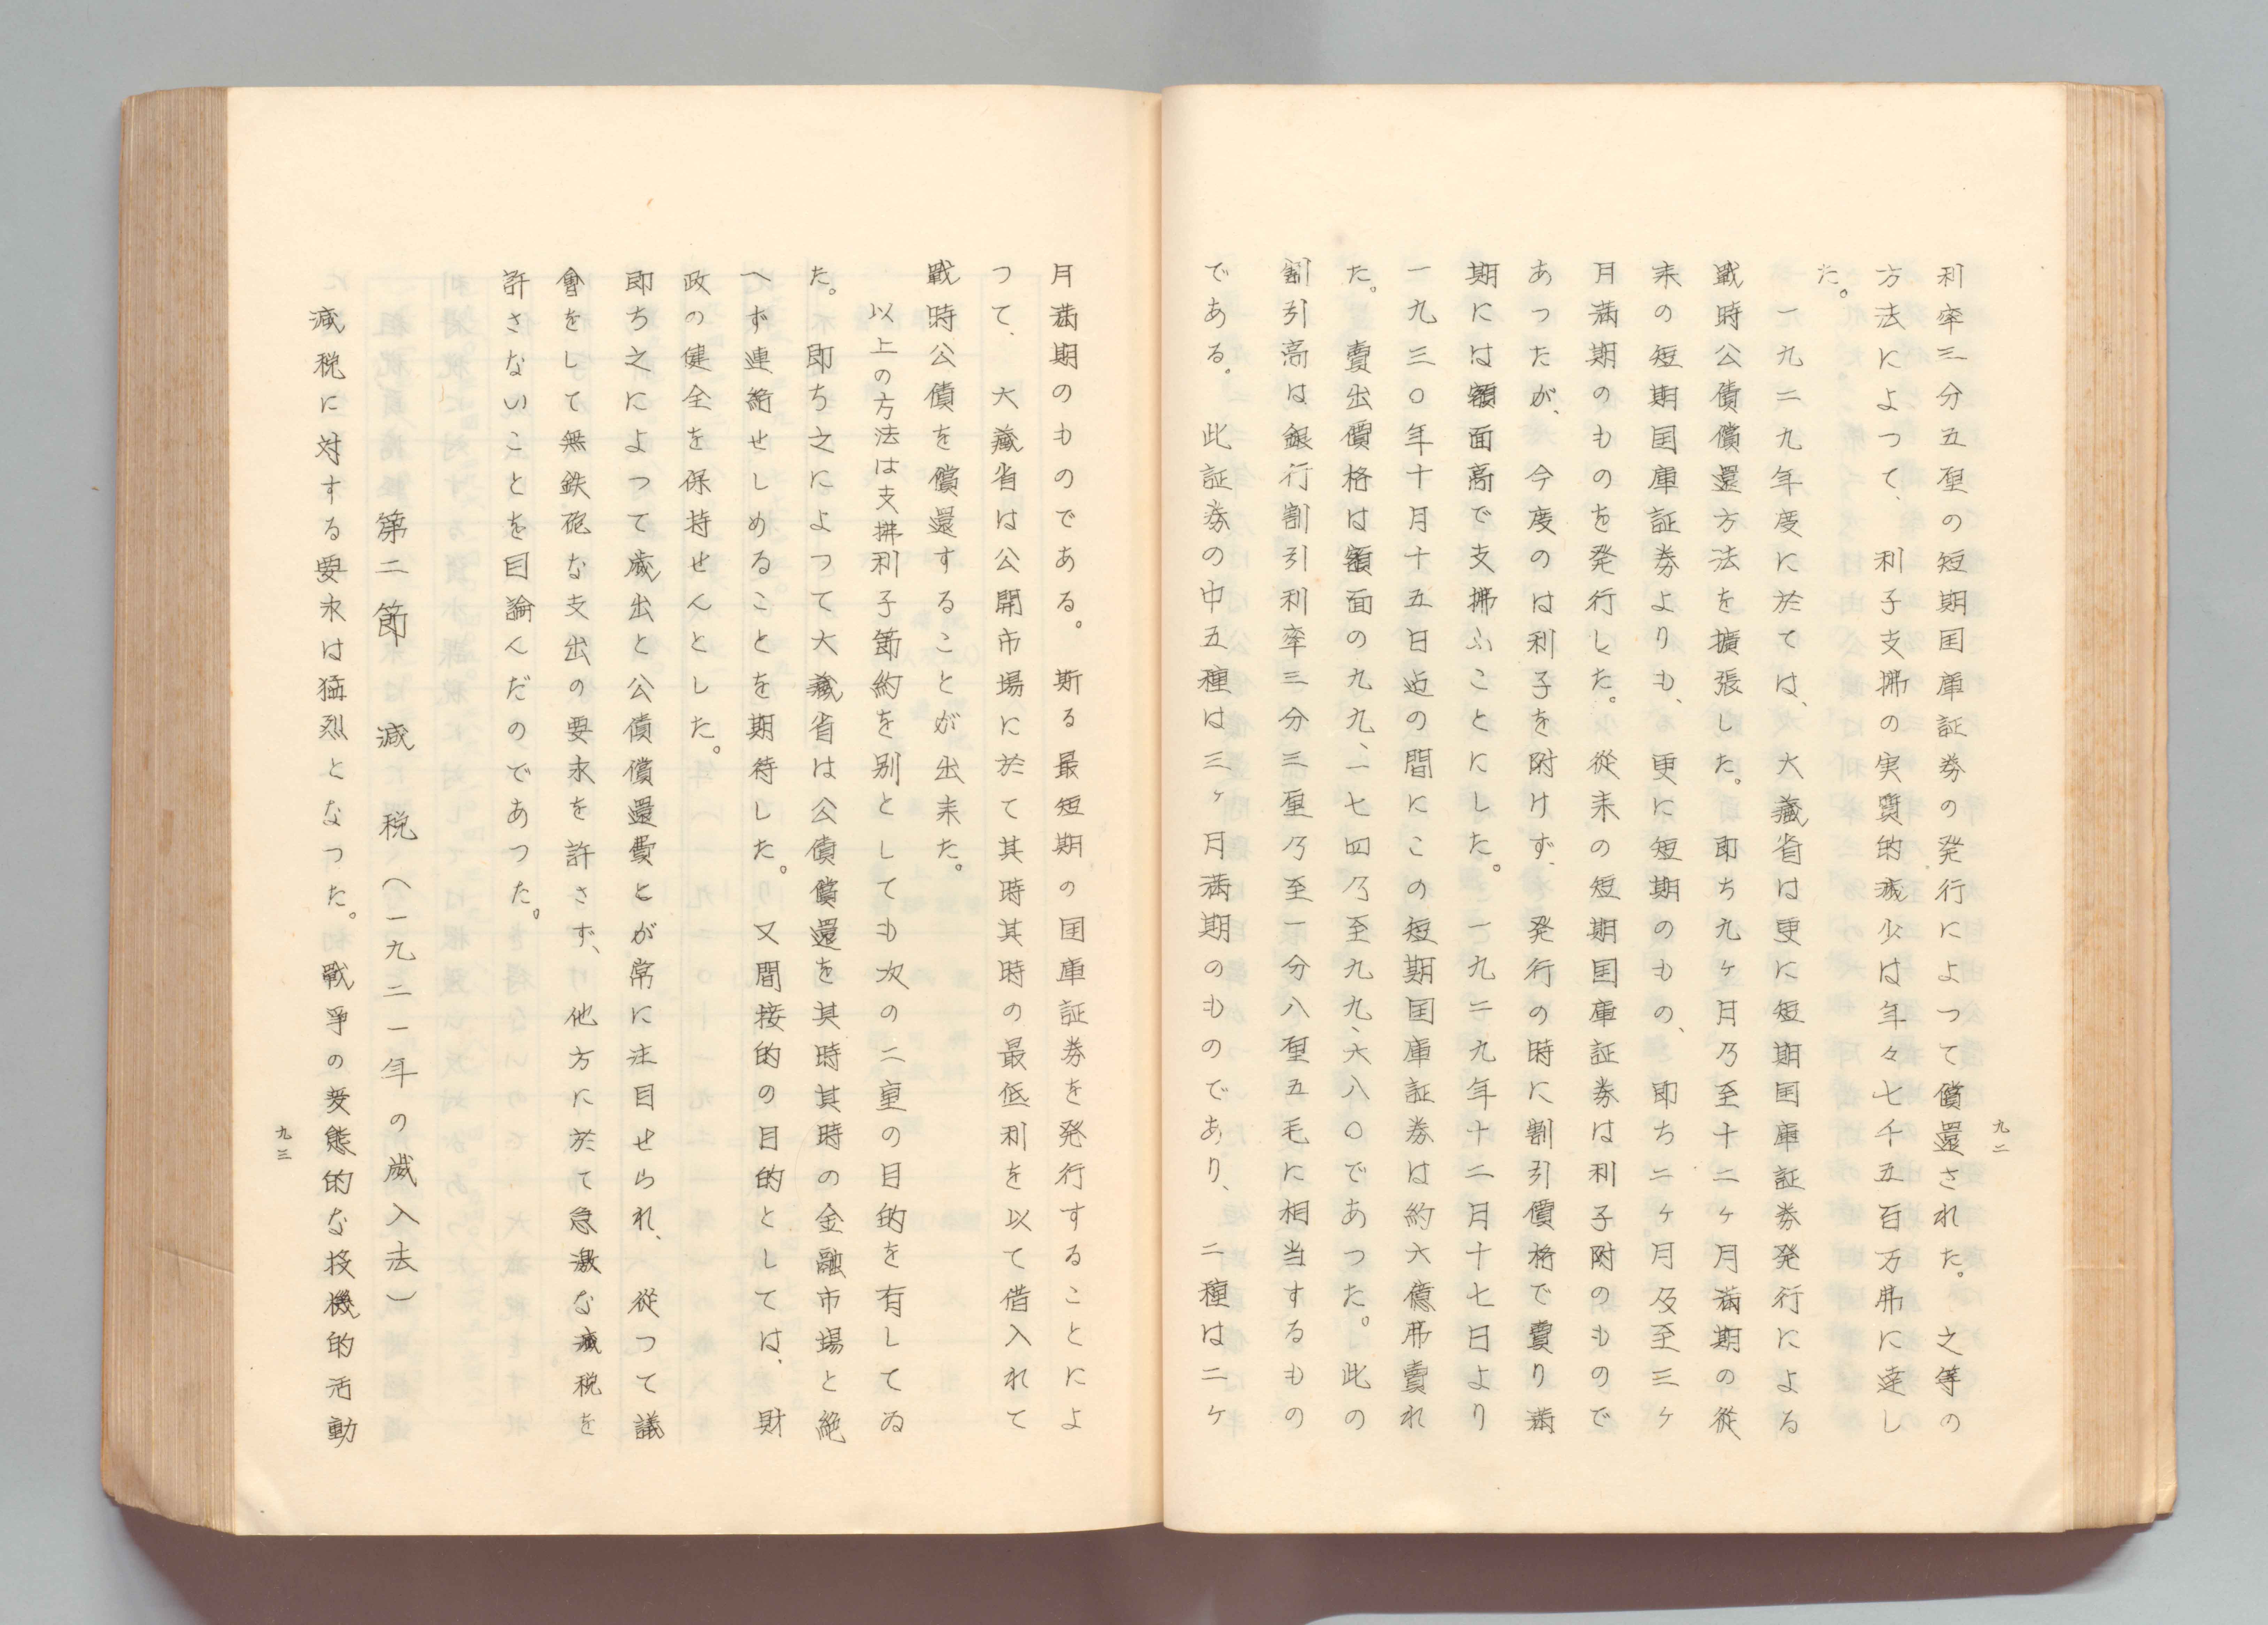 九二
利率三分五厘の短期国庫証券の発行によつて償還された。之等の
方法によつて、利子支拂の実質的減少は年々七千五百万弗に達し
た。
一九二九年度に於ては、大藏省は更に短期国庫証券発行による
戰時公債償還方法を擴張した。即ち九ヶ月乃至十二ヶ月満期の從
来の短期国庫証券よりも、更に短期のもの、即ち二ヶ月及至三ヶ
月満期のものを発行した。從来の短期国庫証券は利子附のもので
あつたが、今度のは利子を附けず、発行の時に割引價格で賣り満
期には額面高で支拂ふことにした。一九二九年十二月十七日より
一九三〇年十月十五日迠の間にこの短期国庫証券は約六億弗賣れ
た。賣出價格は額面の九九、一七四乃至九九、六八〇であつた。此の
割引高は銀行割引利率三分三厘乃至一分八厘五毛に相当するもの
である。此証券の中五種は三ヶ月満期のものであり、二種は二ヶ
月満期のものである。斯る最短期の国庫証券を発行することによ
つて、大藏省は公開市場に於て其時其時の最低利を以て借入れて
戰時公債を償還することが出来た。
以上の方法は支拂利子節約を別としても次の二重の目的を有してゐ
た。即ち之によつて大藏省は公債償還を其時其時の金融市場と絶
へず連絡せしめることを期待した。又間接的の目的としては、財
政の健全を保持せんとした。
即ち之によつて歳出と公債償還費とが常に注目せられ、從つて議
會をして無鉄砲な支出の要求を許さず、他方に於て急激な減税を
許さないことを目論んだのであつた。
第二節 減税（一九二一年の歳入法）
減税に対する要求は猛烈となつた。戰爭の変態的な投機的活動
九三